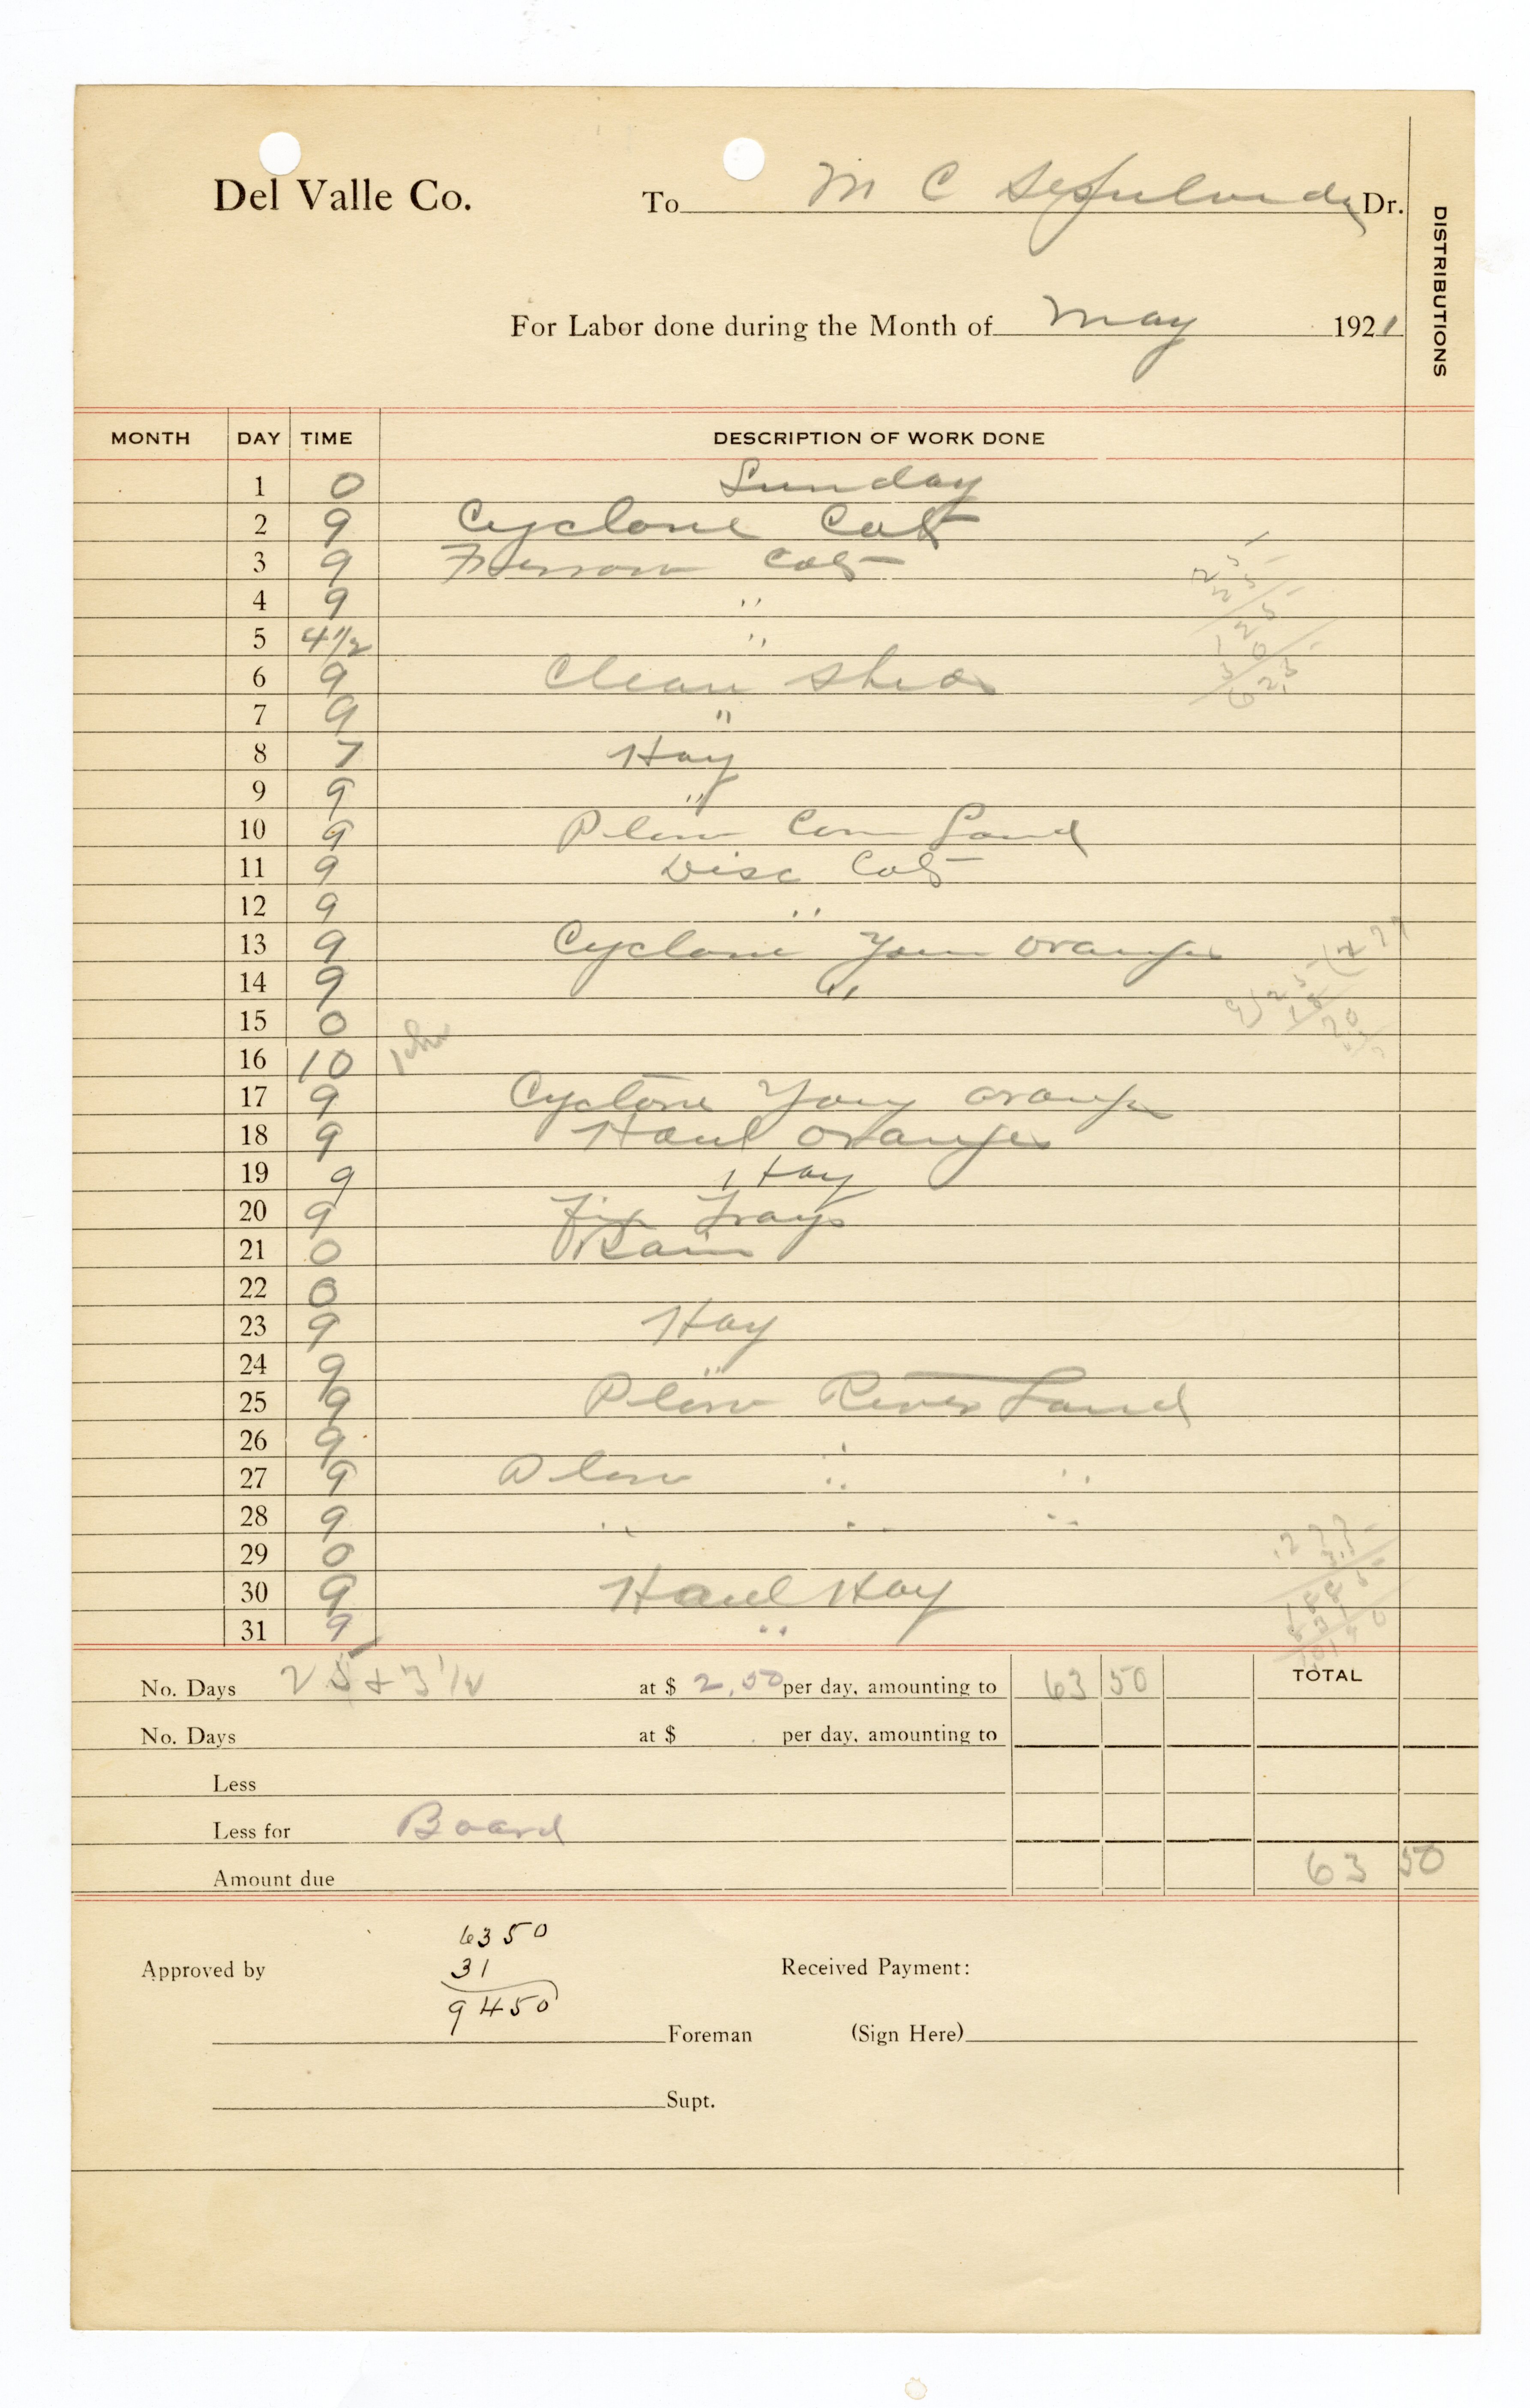 Del Valle Co. To M C Sepulveda Dr.
DISTRIBUTIONS
For Labor done during the Month of May 1921
MONTH DAY TIME DESCRIPTION OF WORK DONE
1 0 Sunday
2 9 Cyclone Cot
3 9 Furrow Cots
4 9 "
5 4 1/2 "
6 9 Clean Shed
7 9 "
8 7 Hay
9 9 "
10 9 Plow Corn Land
11 9 Disc Cots
12 9 "
13 9 Cyclone Youn oranges
14 9 "
15 0
16 10
17 9 Cyclone Young oranges
18 9 Haul oranges
19 9 Hay
20 9 Fix Trays
21 0 Rain
22 0
23 9 Hay
24 9 "
25 9 Plow River Land
26 9 "
27 9 Plow " "
28 9 " " "
29 0
30 9 Haul Hay
31 9 "
No. Days 25 + 3 1/2 at $ 2.50 per day, amounting to 63 50 TOTAL
No. Days at $ per day, amounting to
Less
Less for Board
Amount due 63 50
6350
Approved by 31 Received Payment:
9450
Foreman (Sign Here)
Supt.